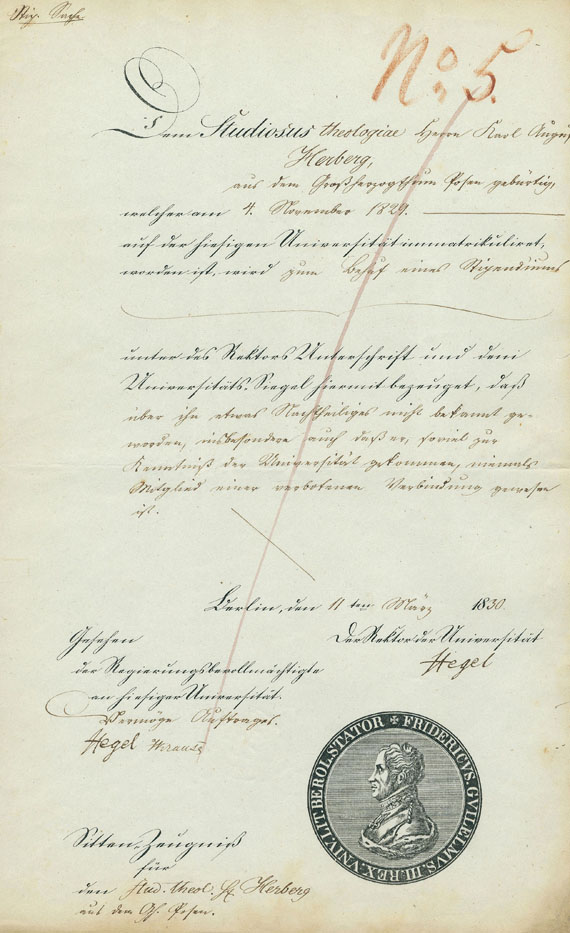 Stip. Sache
No. 5.
Dem Studiosus theologiae Herrn Karl Augus
Herberg,
aus dem Großherzogthum Posen gebürtig,
welcher am 4. November 1829.
auf der hiesigen Universität immatrikuliret,
worden ist, wird zum Behuf eines Stipendiums
unter des Rektors Unterschrift und dem
Universitäts-Siegel hiermit bezeuget, daß
über ihn etwas Nachtheiliges nicht bekannt ge-
worden, insbesondere auch daß er, soviel zur
Kenntniß der Universität gekommen, niemals
Mitglied einer verbotenen Verbindung gewesen
ist.
Berlin, den 11ten März 1830.
Gesehen
der Regierungsbevollmächtigte
an hiesiger Universität.
Vermöge Auftrages.
Hegel Krause
Der Rektor der Universität
Hegel
FRIDERICVS. GVILELMVS. III. REX. VNIV. LIT. BEROL. STATOR
Sitten-Zeugniß
für
den stud. theol. H. Herberg
aus dem Gh. Posen.